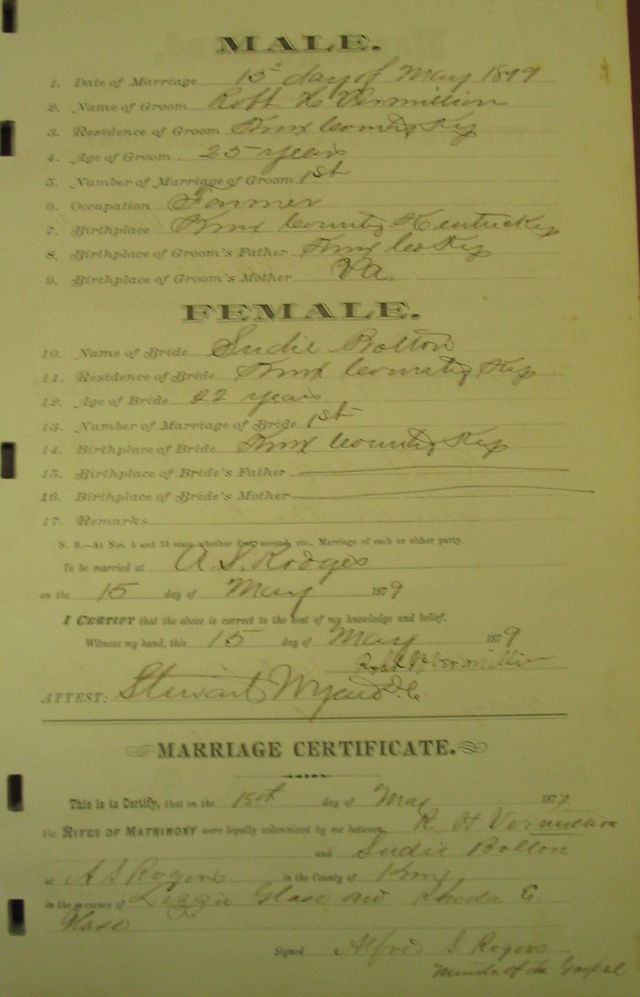 MALE.
1. Date of Marriage 15" day of May 1879
2. Name of Groom Robt H Vermillion
3. Residence of Groom Knox County Ky
4. Age of Groom 25 years
5. Number of Marriage of Groom 1st
6. Occupation Farmer
7. Birthplace Knox County Kentucky
8. Birthplace of Groom's Father Knox Co Ky
9. Birthplace of Groom's Mother Va.
FEMALE.
10. Name of Bride Sudie Bolton
11. Residence of Bride Knox County Ky
12. Age of Bride 22 years
13. Number of Marriage of Bride 1st
14. Birthplace of Bride Knox County Ky
15. Birthplace of Bride's Father
16. Birthplace of Bride's Mother
17. Remarks
N. B.—At Nos. 5 and 13 state whether first, second, etc., Marriage of each or either party.
To be married at A. S. Rodges
on the 15 day of May 1879
I CERTIFY that the above is correct to the best of my knowledge and belief.
Witness my hand, this 15 day of May 1879
Robt H Vermillion
ATTEST: Stewart D.C.
MARRIAGE CERTIFICATE.
This is to Certify, that on the 15th day of May 187
the RITES OF MATRIMONY were legally solemnized by me between R H Vermillion
and Sudie Bolton
at A S Rogers in the County of Knox
in the presence of Lizzie Glass and Rhoda E.
Glass
Signed Alfred S Rogers
of the Gospel